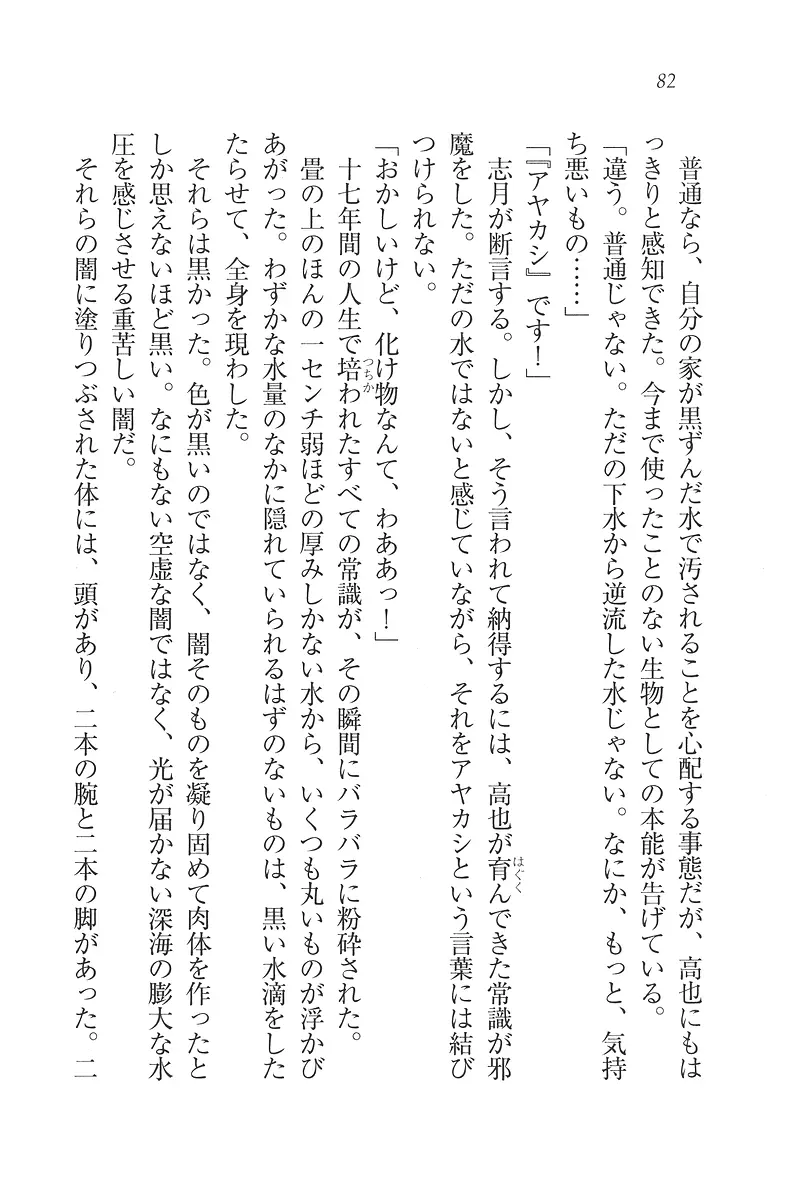 82
普通なら、自分の家が黒ずんだ水で汚されることを心配する事態だが、高也にもは
っきりと感知できた。今まで使ったことのない生物としての本能が告げている。
「違う。普通じゃない。ただの下水から逆流した水じゃない。なにか、もっと、気持
ち悪いもの……」
「『アヤカシ』です！」
志月が断言する。しかし、そう言われて納得するには、高也が育んできた常識が邪
はぐく
魔をした。ただの水ではないと感じていながら、それをアヤカシという言葉には結び
つけられない。
「おかしいけど、化け物なんて、わああっ！」
十七年間の人生で培われたすべての常識が、その瞬間にバラバラに粉砕された。
つちか
畳の上のほんの一センチ弱ほどの厚みしかない水から、いくつも丸いものが浮かび
あがった。わずかな水量のなかに隠れていられるはずのないものは、黒い水滴をした
たらせて、全身を現わした。
それらは黒かった。色が黒いのではなく、闇そのものを凝り固めて肉体を作ったと
しか思えないほど黒い。なにもない空虚な闇ではなく、光が届かない深海の膨大な水
圧を感じさせる重苦しい闇だ。
それらの闇に塗りつぶされた体には、頭があり、二本の腕と二本の脚があった。二